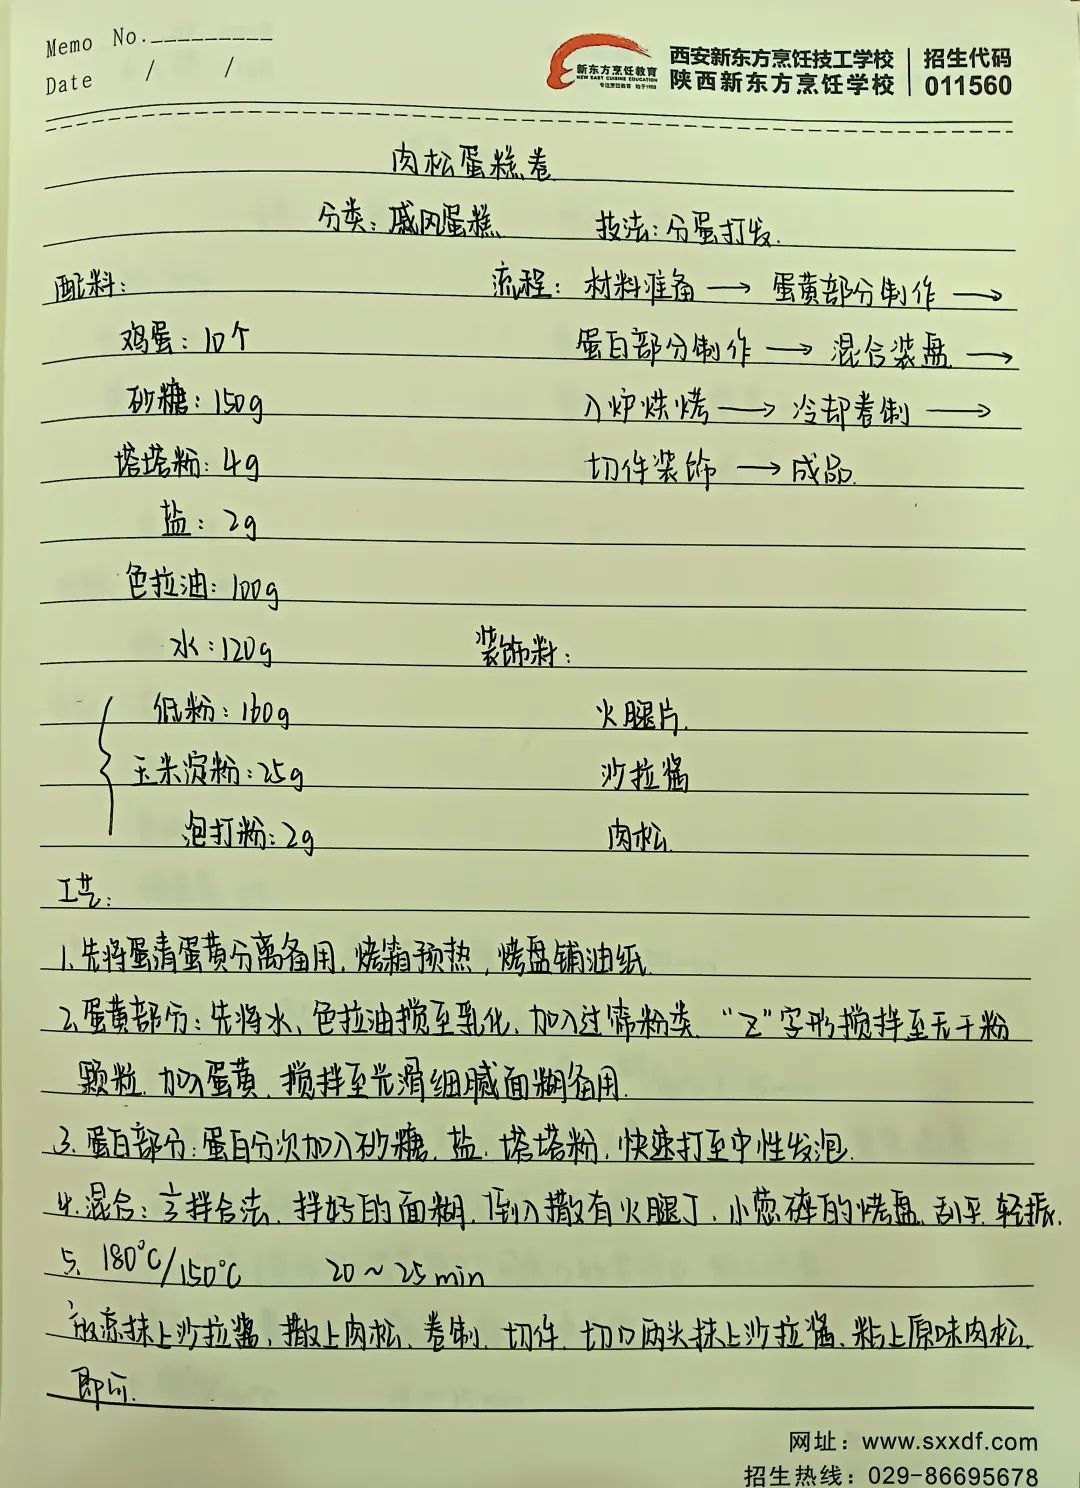 Memo No.
Date / /
新东方烹饪教育
NEW EAST CUISINE EDUCATION
西安新东方烹饪技工学校
陕西新东方烹饪学校
招生代码
011560
肉松蛋糕卷
分类：戚风蛋糕 技法：分蛋打发.
配料：
流程：材料准备→蛋黄部分制作→
鸡蛋：10个
蛋白部分制作→混合装盘→
砂糖：150g
入炉烘烤→冷却卷制→
塔塔粉：4g
切件装饰→成品.
盐：2g
色拉油：100g
水：120g
装饰料：
低粉：160g
火腿片.
玉米淀粉：25g
沙拉酱
泡打粉：2g
肉松.
工艺：
1.先将蛋清蛋黄分离备用,烤箱预热,烤盘铺油纸.
2.蛋黄部分：先将水、色拉油搅至乳化,加入过筛粉类 "Z"字形搅拌至无干粉
颗粒,加入蛋黄,搅拌至光滑细腻面糊备用.
3.蛋白部分：蛋白分次加入砂糖、盐、塔塔粉,快速打至中性发泡.
4.混合：立拌合法,拌好的面糊,倒入撒有火腿丁、小葱碎的烤盘,刮平,轻振.
5、180℃/150℃ 20~25min
放凉抹上沙拉酱,撒上肉松,卷制,切件,切口两头抹上沙拉酱,粘上原味肉松,
即可.
网址：www.sxxdf.com
招生热线：029-86695678